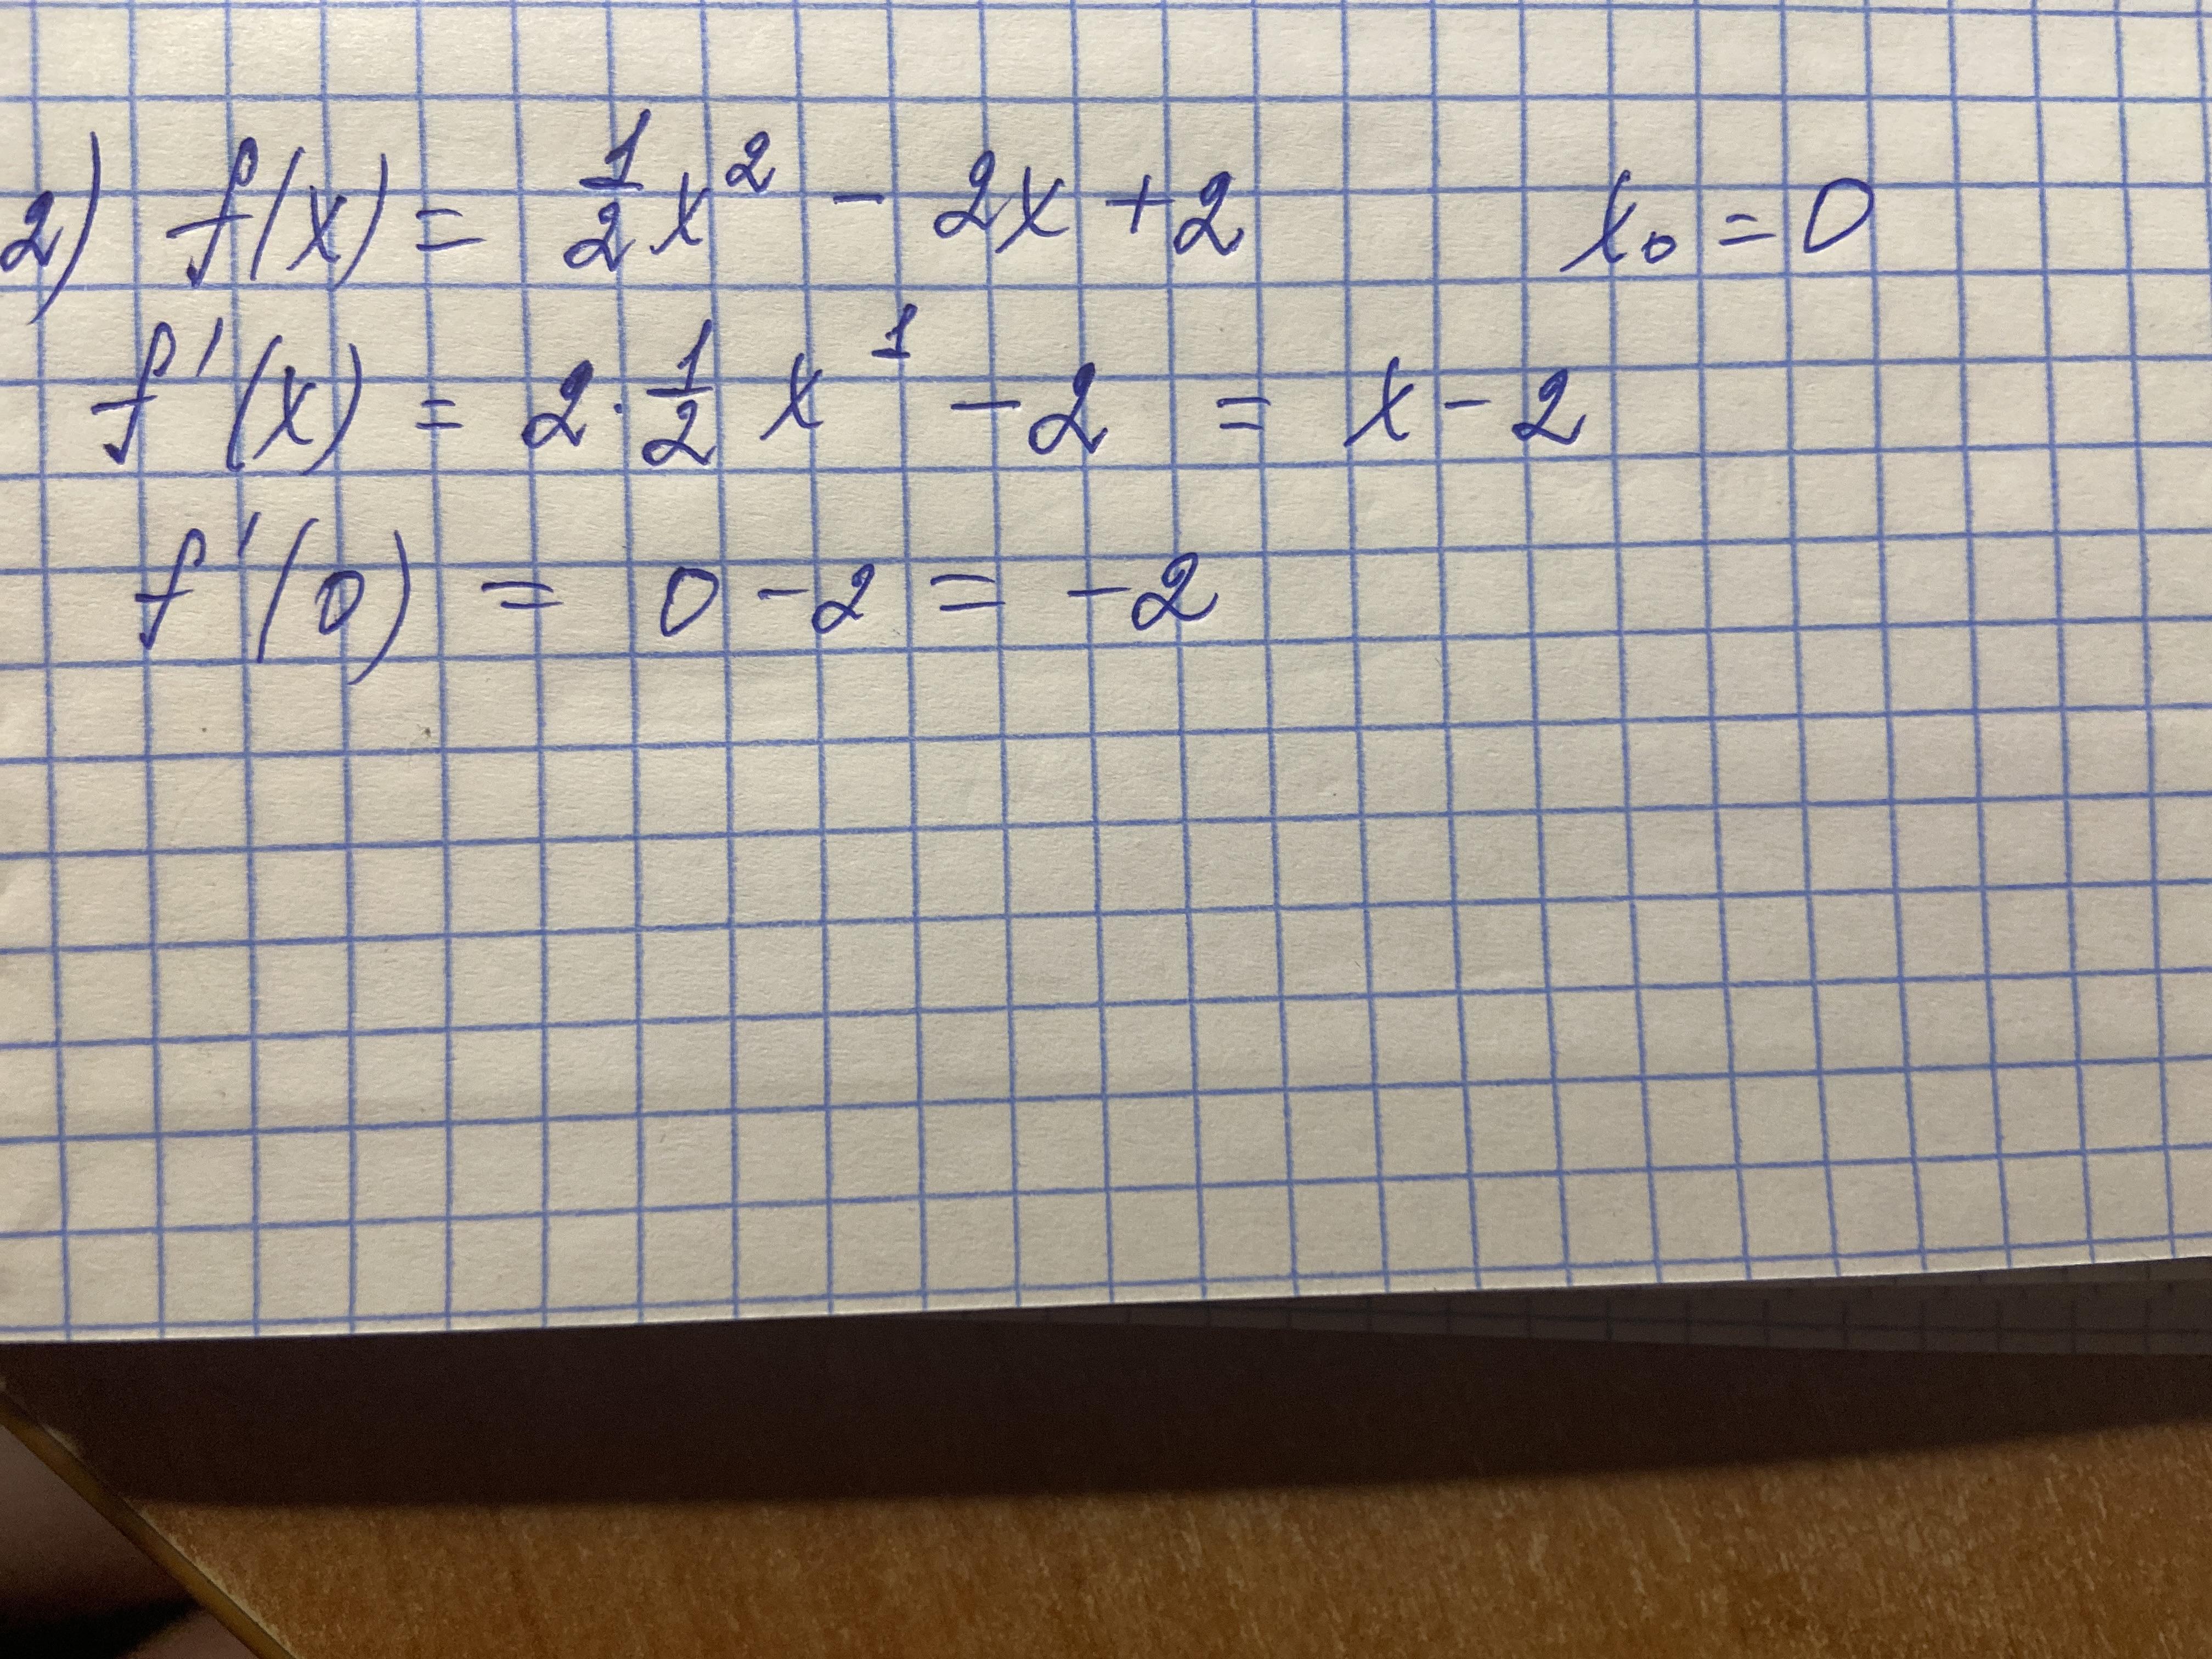 2) f(x) = 1/2 x² - 2x + 2 x₀ = 0
f'(x) = 2 · 1/2 x¹ - 2 = x - 2
f'(0) = 0 - 2 = -2